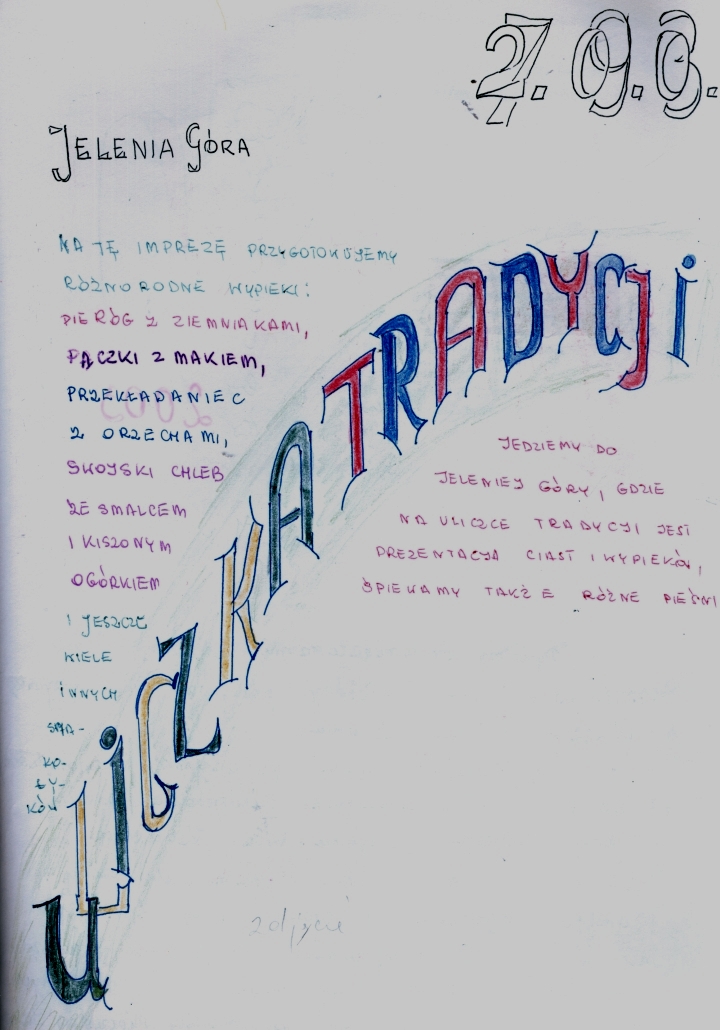 JELENIA GÓRA
NA TĘ IMPREZĘ PRZYGOTOWUJEMY
RÓŻNORODNE WYPIEKI:
PIERÓG Z ZIEMNIAKAMI,
PĄCZKI Z MAKIEM,
PRZEKŁADANIEC
Z ORZECHAMI,
SWOJSKI CHLEB
ZE SMALCEM
I KISZONYM
OGÓRKIEM
I JESZCZE
WIELE
INNYCH
SMA-
KO-
ŁY-
KÓW
ULiCZKA TRADYCJi
JEDZIEMY DO
JELENIEJ GÓRY, GDZIE
NA ULICZCE TRADYCJI JEST
PREZENTACJA CIAST I WYPIEKÓW,
ŚPIEWAMY TAKŻE RÓŻNE PIEŚNI